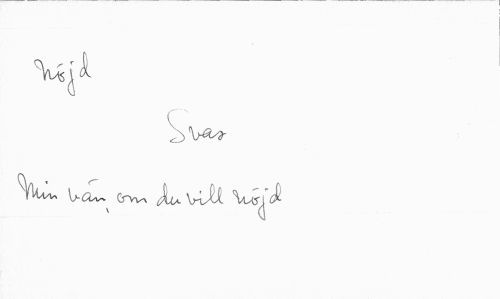 Nöjd
Svar
Min vän, om du vill nöjd